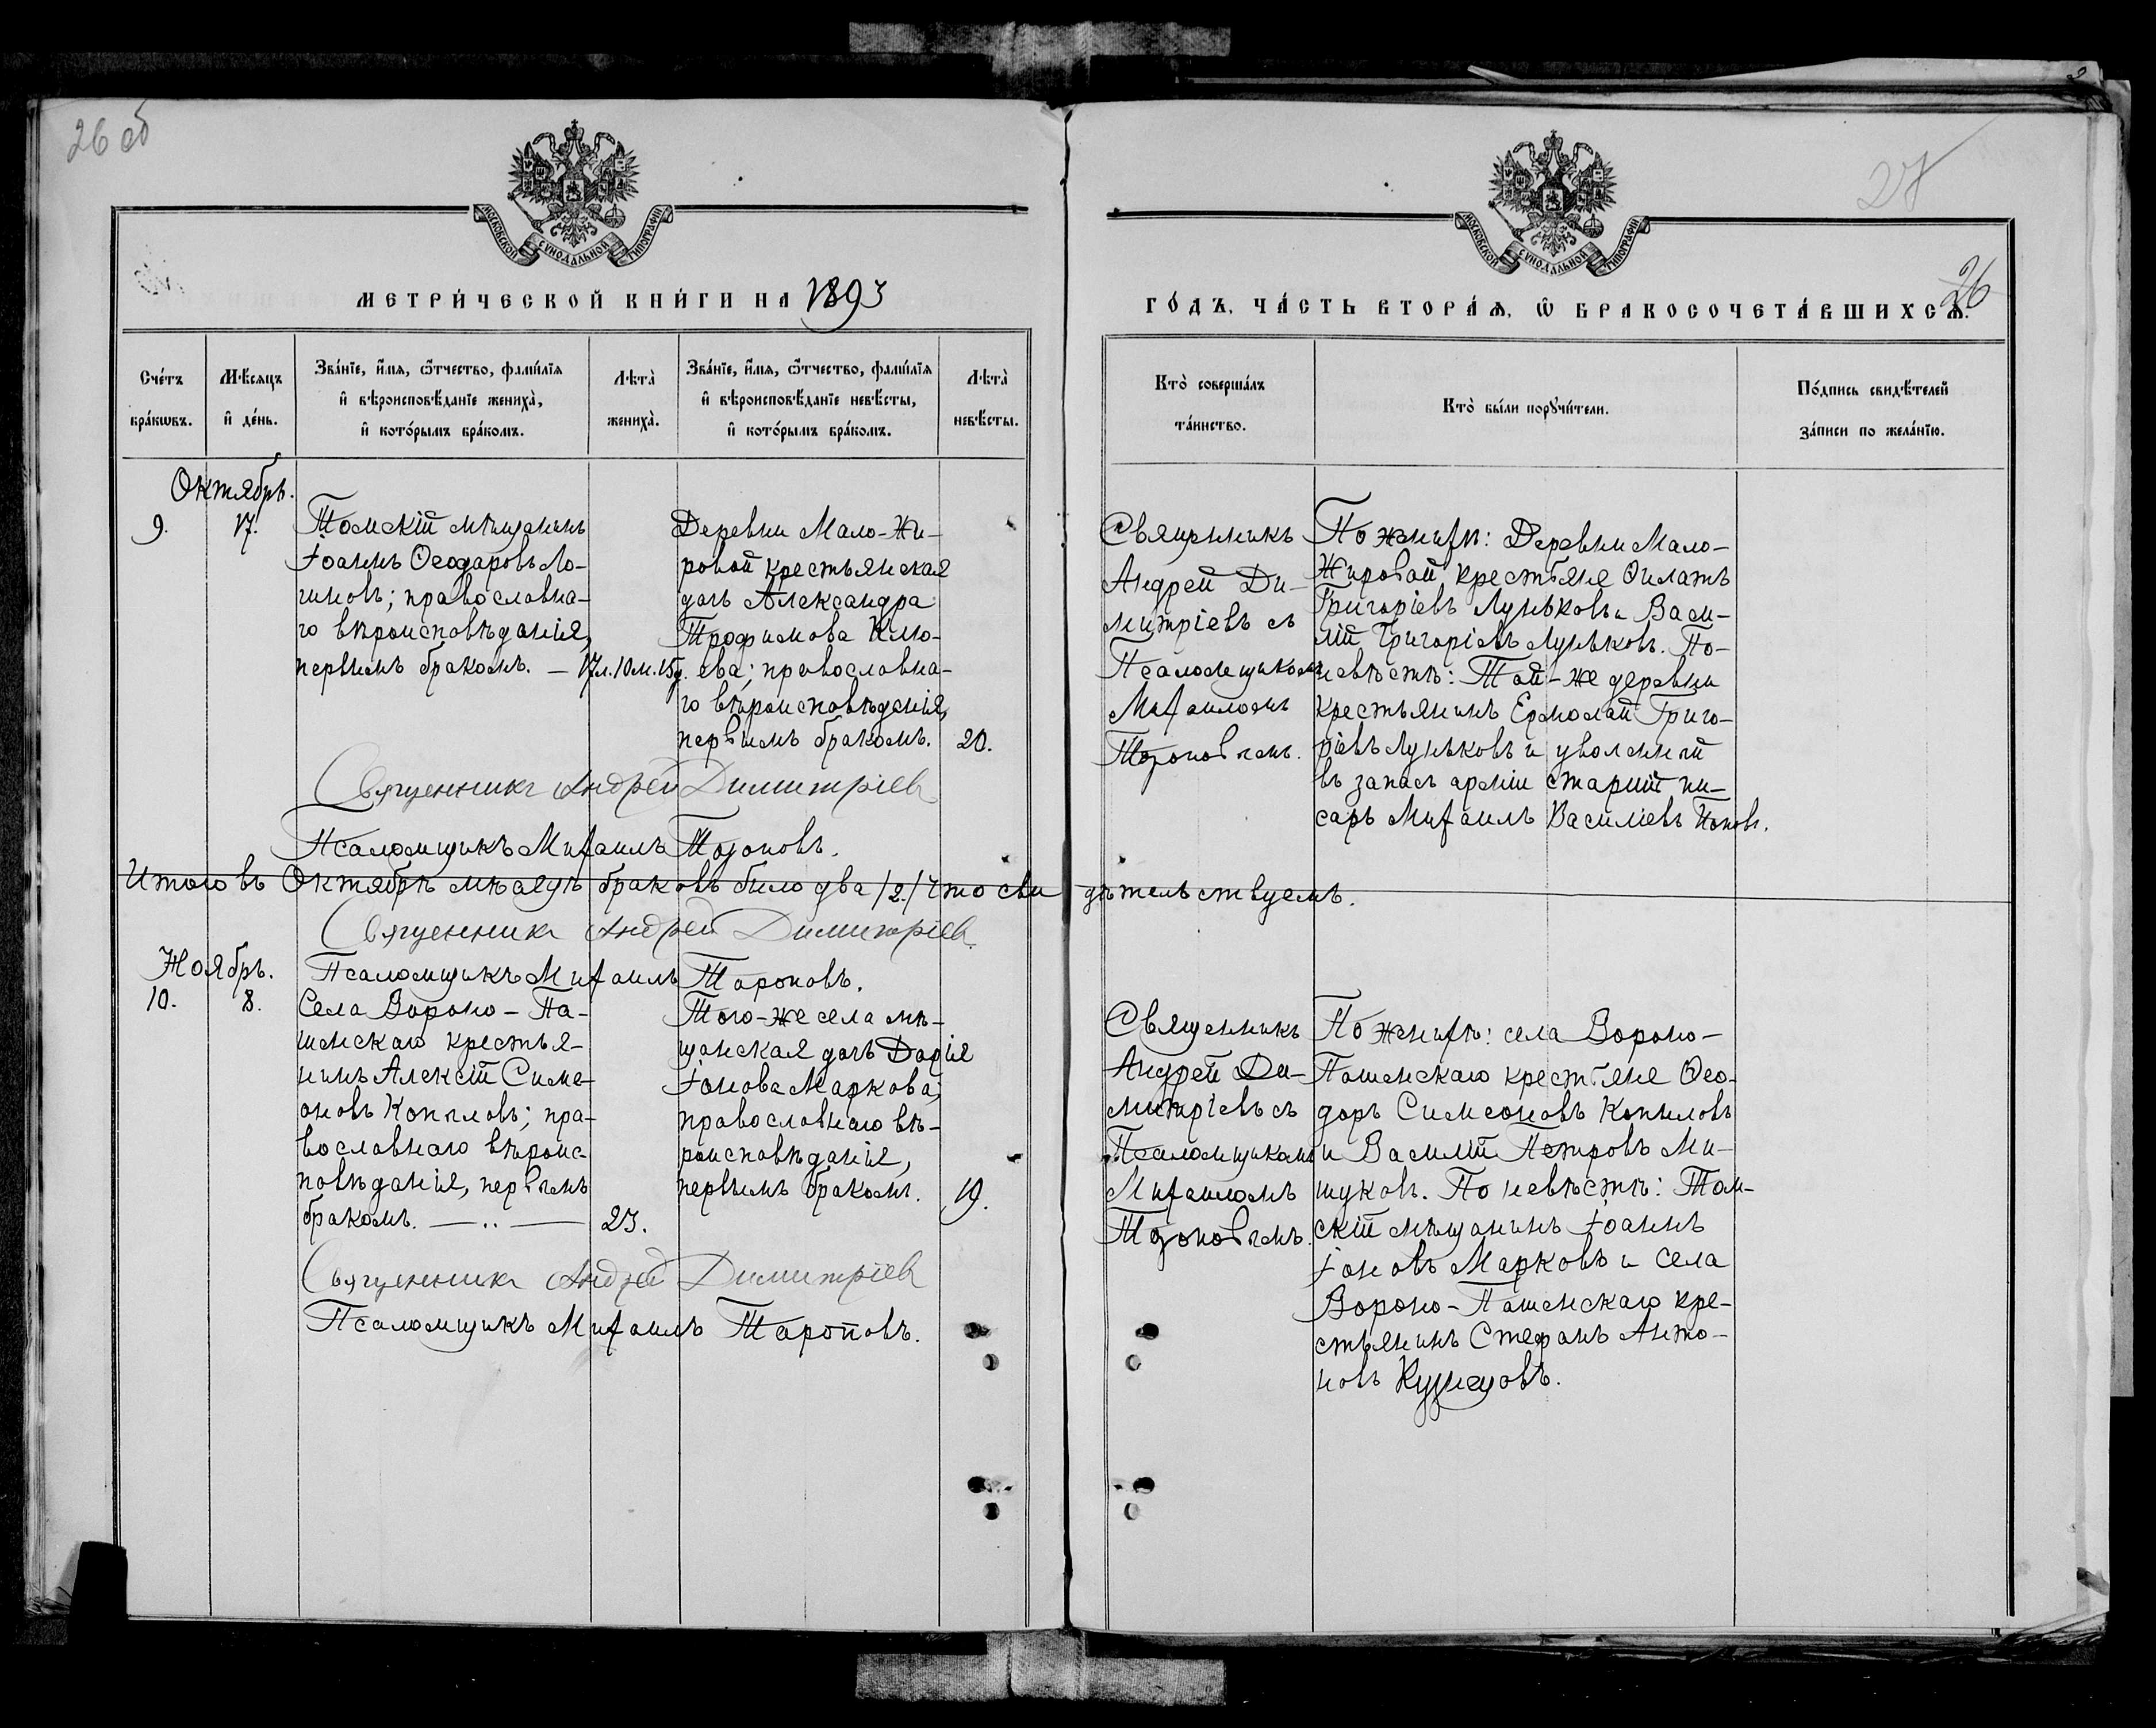 26 об
МОСКОВСКОЙ СУНОДАЛЬНОЙ ТИПОГРАФІИ
МЕТРИ́ЧЕСКОЙ КНИ́ГИ НА 1893
Сче́тъ бра́кωвъ.
Мѣ́сяцъ и҆ де́нь.
Зва́нїе, и҆́мя, ѻ҆́тчество, фами́лїя
и҆ вѣроисповѣ́данїе жениха̀,
и҆ кото́рымъ бра́комъ.
Лѣта̀ жениха̀.
Зва́нїе, и҆́мя, ѻ҆́тчество, фами́лїя
и҆ вѣроисповѣ́данїе невѣ́сты,
и҆ кото́рымъ бра́комъ.
Лѣта̀ невѣ́сты.
Октябрь.
9.
17.
Томскій мѣщанинъ
Іоаннъ Ѳеодоровъ Ло-
гиновъ; православна-
го вѣроисповѣданія,
первымъ бракомъ. —
17л. 10м. 15д.
Деревни Мало-Жи-
ровой крестьянская
дочь Александра
Трофимова Клю-
ева; православна-
го вѣроисповѣданія,
первымъ бракомъ.
20.
Священникъ Андрей Димитріевъ
Псаломщикъ Михаилъ Топоровъ.
Итого въ Октябрѣ мѣсяцѣ браковъ было два /2./ Что сви дѣтельствуемъ.
Священникъ Андрей Димитріевъ
Псаломщикъ Михаилъ
Ноябрь.
10.
8.
Села Вороно-Па-
шенскаго крестья-
нинъ Алексій Симе-
оновъ Копыловъ; пра-
вославнаго вѣроис-
повѣданія, первымъ
бракомъ. —..—
23.
Того-же села мѣ-
щанская дочь Дарія
Іонова Маркова;
православнаго вѣ-
роисповѣданія,
первымъ бракомъ.
19.
Священникъ Андрей Димитріевъ
Псаломщикъ Михаилъ
27
26
МОСКОВСКОЙ СУНОДАЛЬНОЙ ТИПОГРАФІИ
ГО́ДЪ, ЧА́СТЬ ВТОРА́Я, Ѽ БРАКОСОЧЕТА́ВШИХСЯ.
Кто̀ соверша́лъ
та́инство.
Кто̀ бы́ли порꙋчи́тели.
По́дпись свидѣ́телей
за́писи по жела́нїю.
Священникъ
Андрей Ди-
митріевъ съ
Псаломщикомъ
Михаиломъ
По женихѣ: Деревни Мало-
Жировой крестьяне Филатъ
Григоріевъ Луньковъ и Васи-
лій Григоріевъ Луньковъ. По-
невѣстѣ: Той-же деревни
крестьянинъ Ермолай Григо-
ріевъ Луньковъ и уволенный
въ запасъ арміи старшій пи-
сарь Михаилъ Василіевъ
Священникъ
Андрей Ди-
митріевъ съ
Псаломщикомъ
Михаиломъ
По женихѣ: села Вороно-
Пашенскаго крестьяне Ѳео-
доръ Симеоновъ Копыловъ
и Василій Петровъ Ми-
шуковъ. По невѣстѣ: Том-
скій мѣщанинъ Іоаннъ
Іоновъ Марковъ и села
Вороно-Пашенскаго кре-
стьянинъ Стефанъ Анто-
новъ Кузнецовъ.